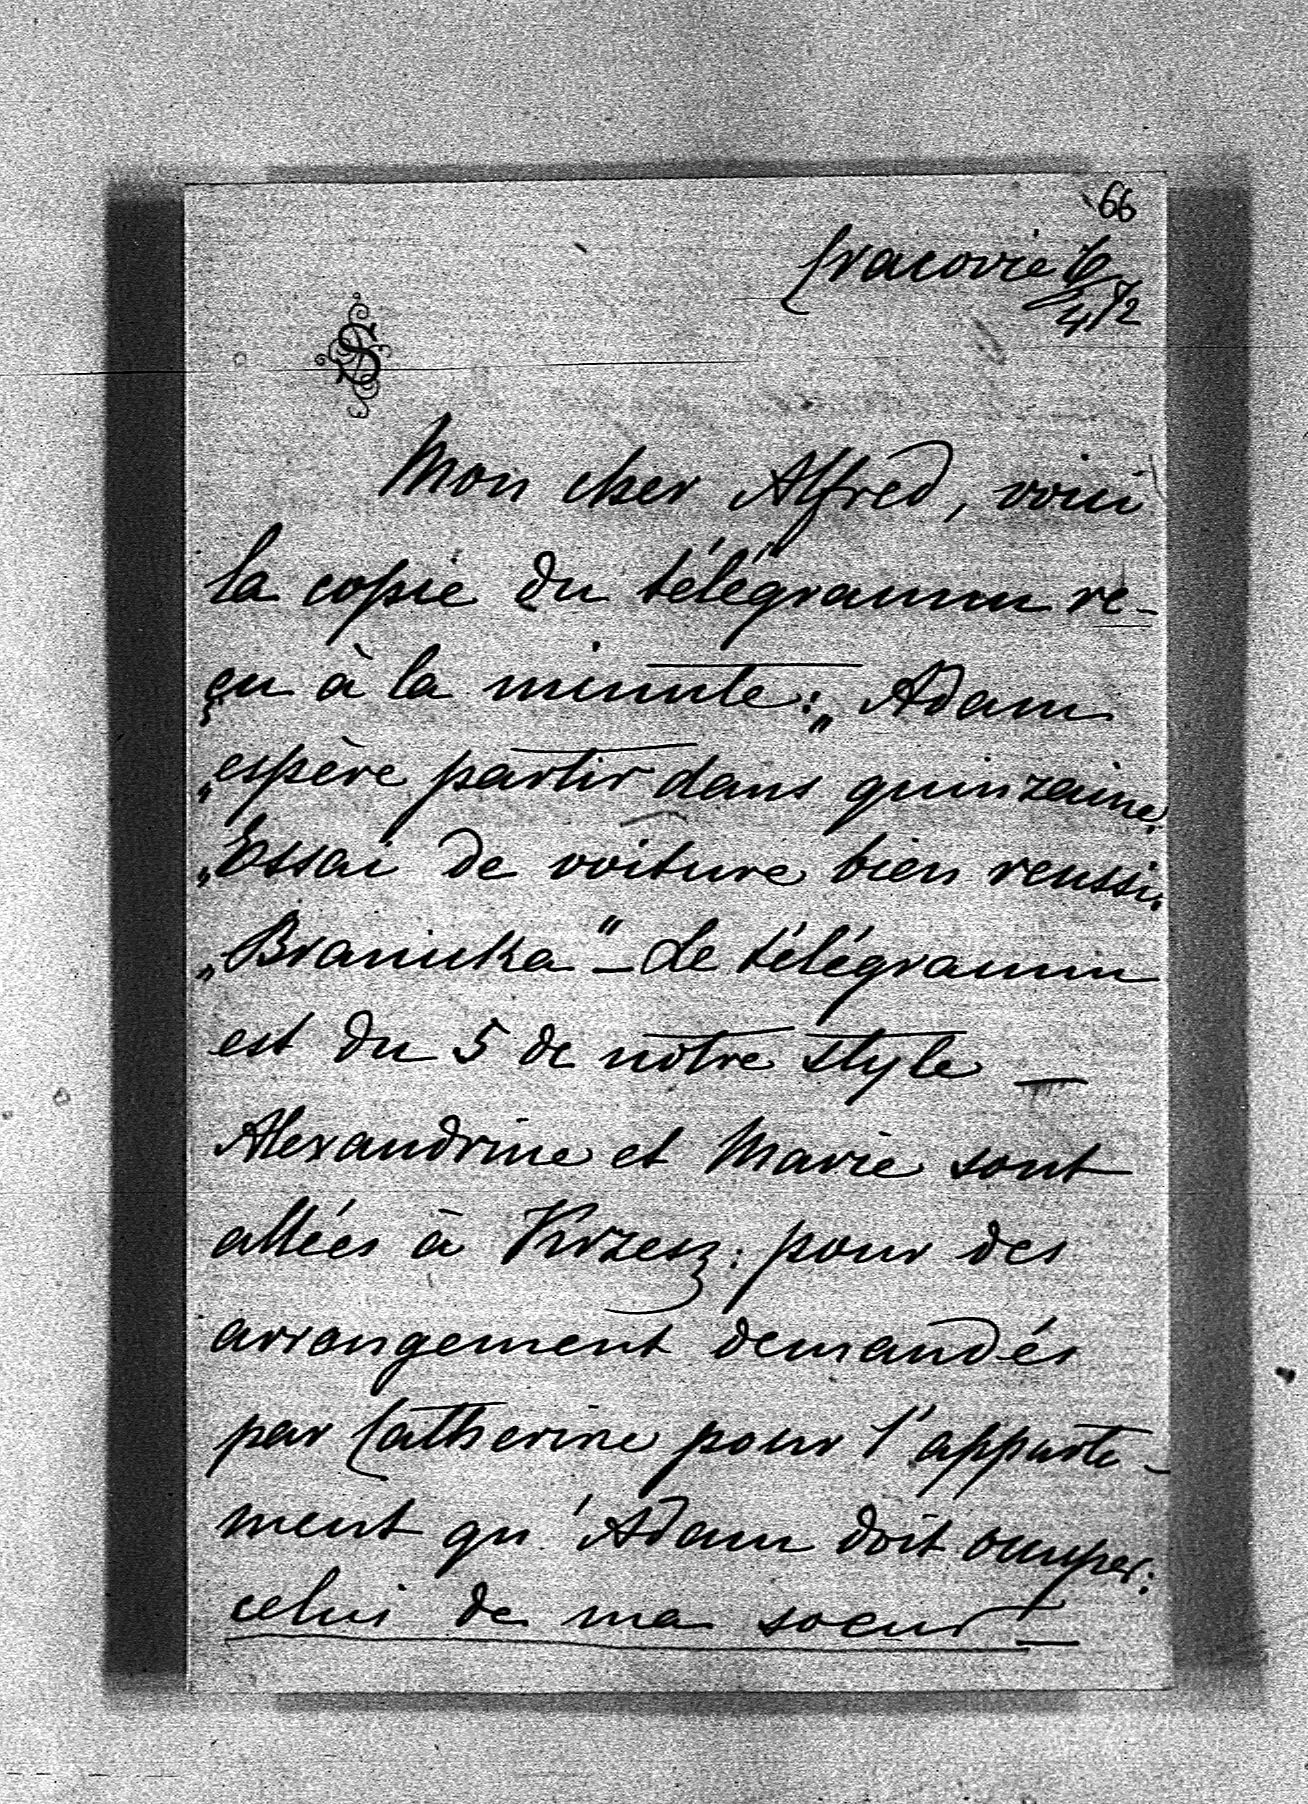 66
Cracovie 6/4 72
S
Mon cher Alfred, voici
la copie du télégramme re-
çu à la minute: „Adam
„espère partir dans quinzaine.
„Essai de voiture bien reussi.
„Branicka" – Le télégramme
est du 5 de notre style –
Alexandrine et Marie sont
allées à Krzesz: pour des
arrangement demandés
par Catherine pour l'apparte-
ment qu'Adam doit occuper:
celui de ma soeur –